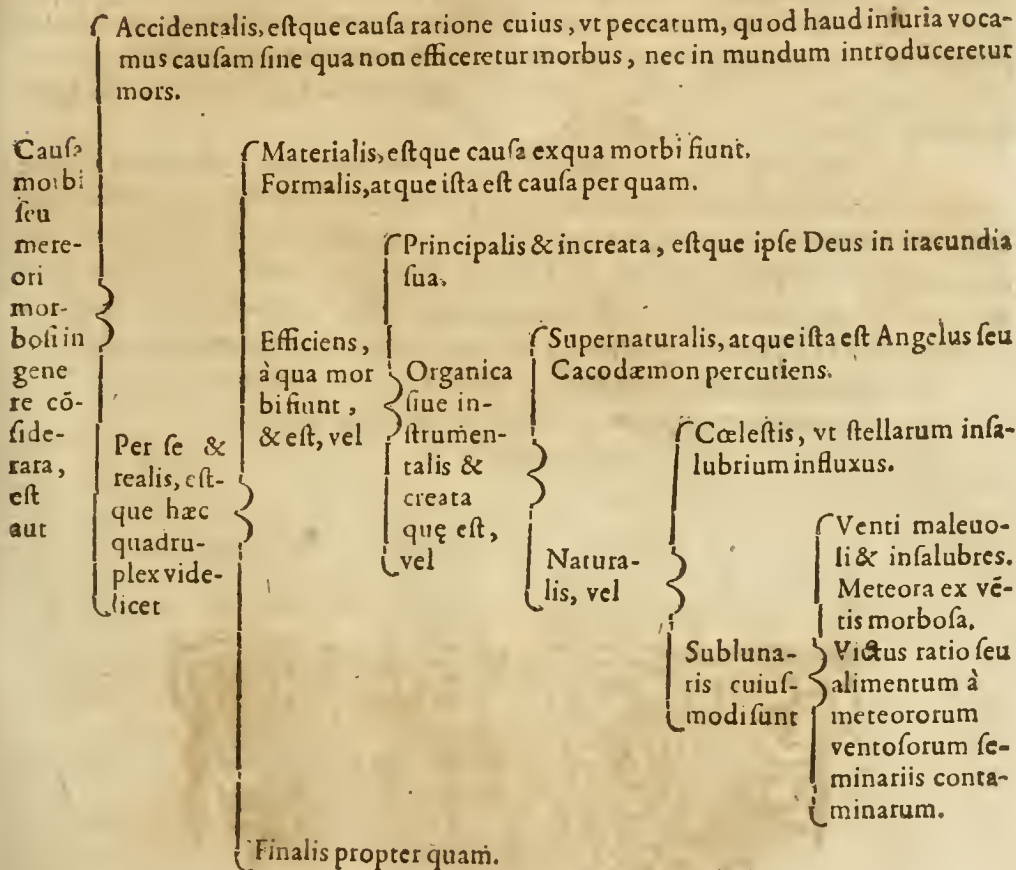 Accidentalis, eſtque cauſa ratione cuius, vt peccatum, quod haud iniuria voca-
mus cauſam ſine qua non efficeretur morbus, nec in mundum introduceretur
mors.
Cauſa
morbi
ſeu
mere-
ori
mor-
boſi in
gene
re cō-
ſide-
rara,
eſt
aut
Per ſe &
realis, eſt-
que hæc
quadru-
plex vide-
licet
Materialis, eſtque cauſa ex qua morbi fiunt.
Formalis, atque iſta eſt cauſa per quam.
Efficiens,
à qua mor
bi fiunt,
& eſt, vel
Principalis & increata, eſtque ipſe Deus in iracundia
ſua.
Organica
ſiue in-
ſtrumen-
talis &
creata
quę eſt,
vel
Supernaturalis, atque iſta eſt Angelus ſeu
Cacodæmon percutiens.
Natura-
lis, vel
Cœleſtis, vt ſtellarum inſa-
lubrium influxus.
Subluna-
ris cuiuſ-
modi ſunt
Venti maleuo-
li & inſalubres.
Meteora ex vē-
tis morboſa.
Victus ratio ſeu
alimentum à
meteororum
ventoſorum ſe-
minariis conta-
minarum.
Finalis propter quam.